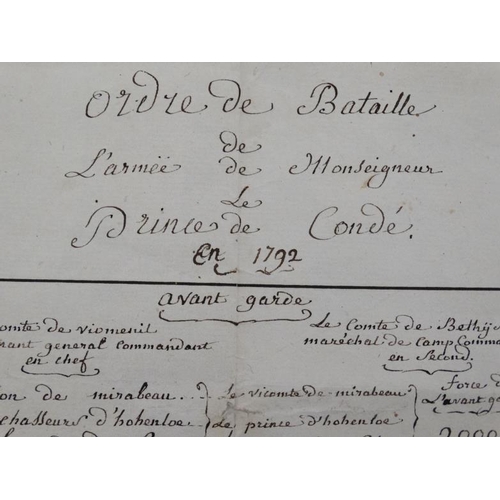 Ordre de Bataille
de
L'armëë de Monseigneur
Le
Prince de Condé.
En 1792
avant garde
omte de viomenil
nant general commandant
en chef
Le Comte de Bethij
maréchal de Camp Comma
en Second.
ion de mirabeau... Le vicomte de mirabeau
chasseurs d'hohenloe Le prince d'hohenloe
Force d
L'avant ga